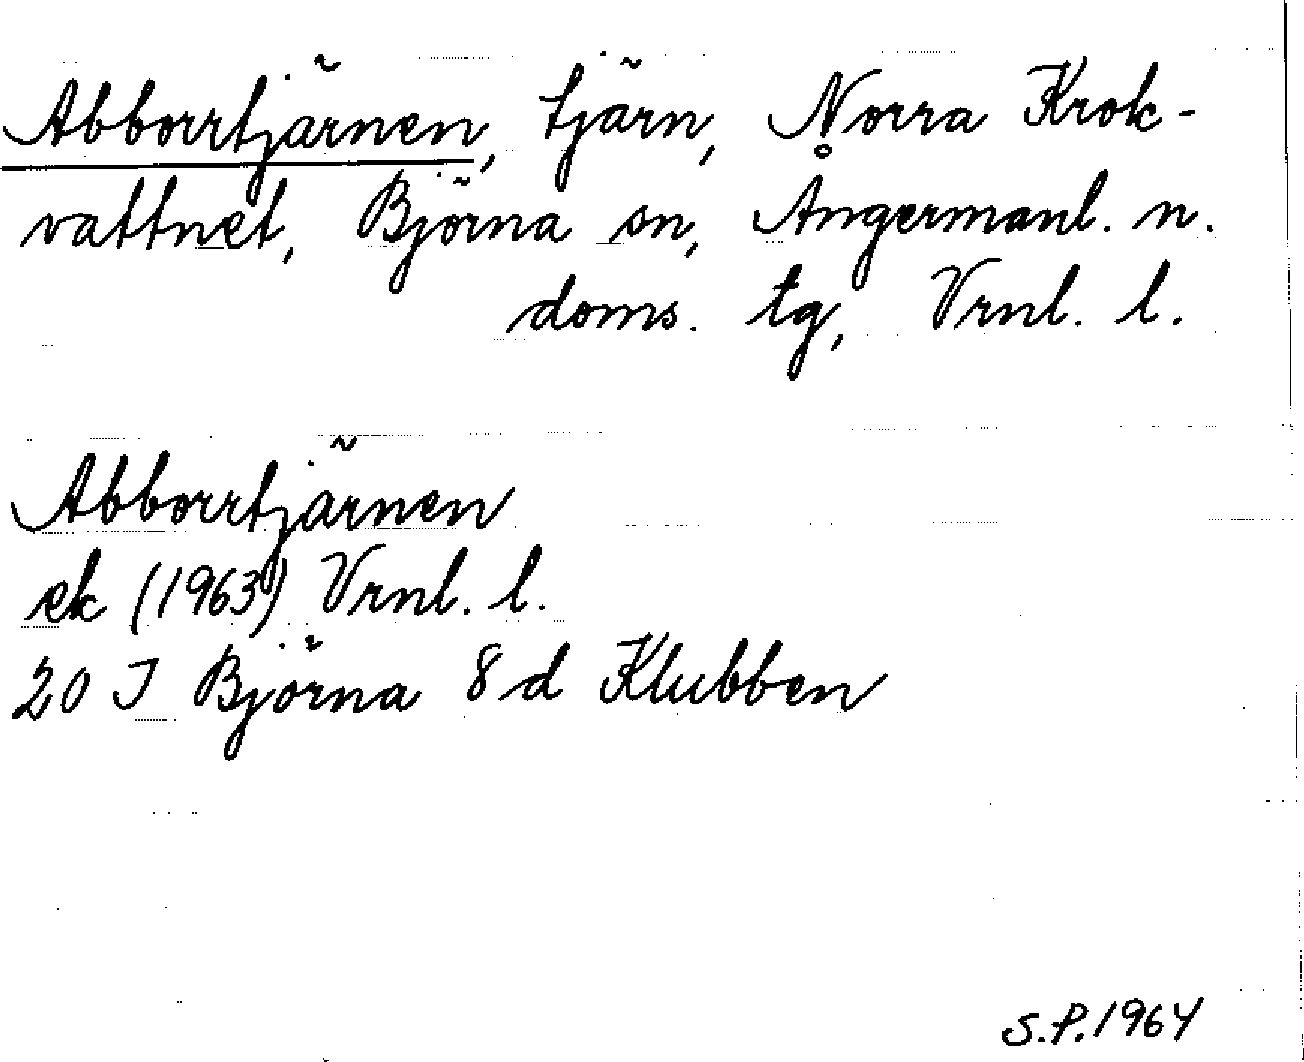 Abborrtjärnen, tjärn, Norra Krok-
vattnet, Björna sn, Ångermanl. n.
doms. tg, Vrnl. l.
Abborrtjärnen
ek (1963) Vrnl. l.
20 I Björna 8 d Klubben
S.P. 1964